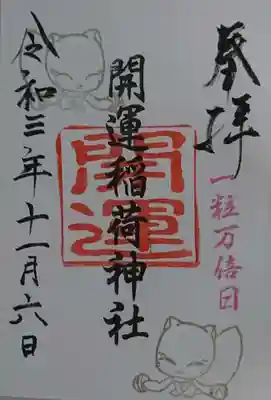 奉拝
一粒万倍日
開運稲荷神社
開運
令和三年十一月六日